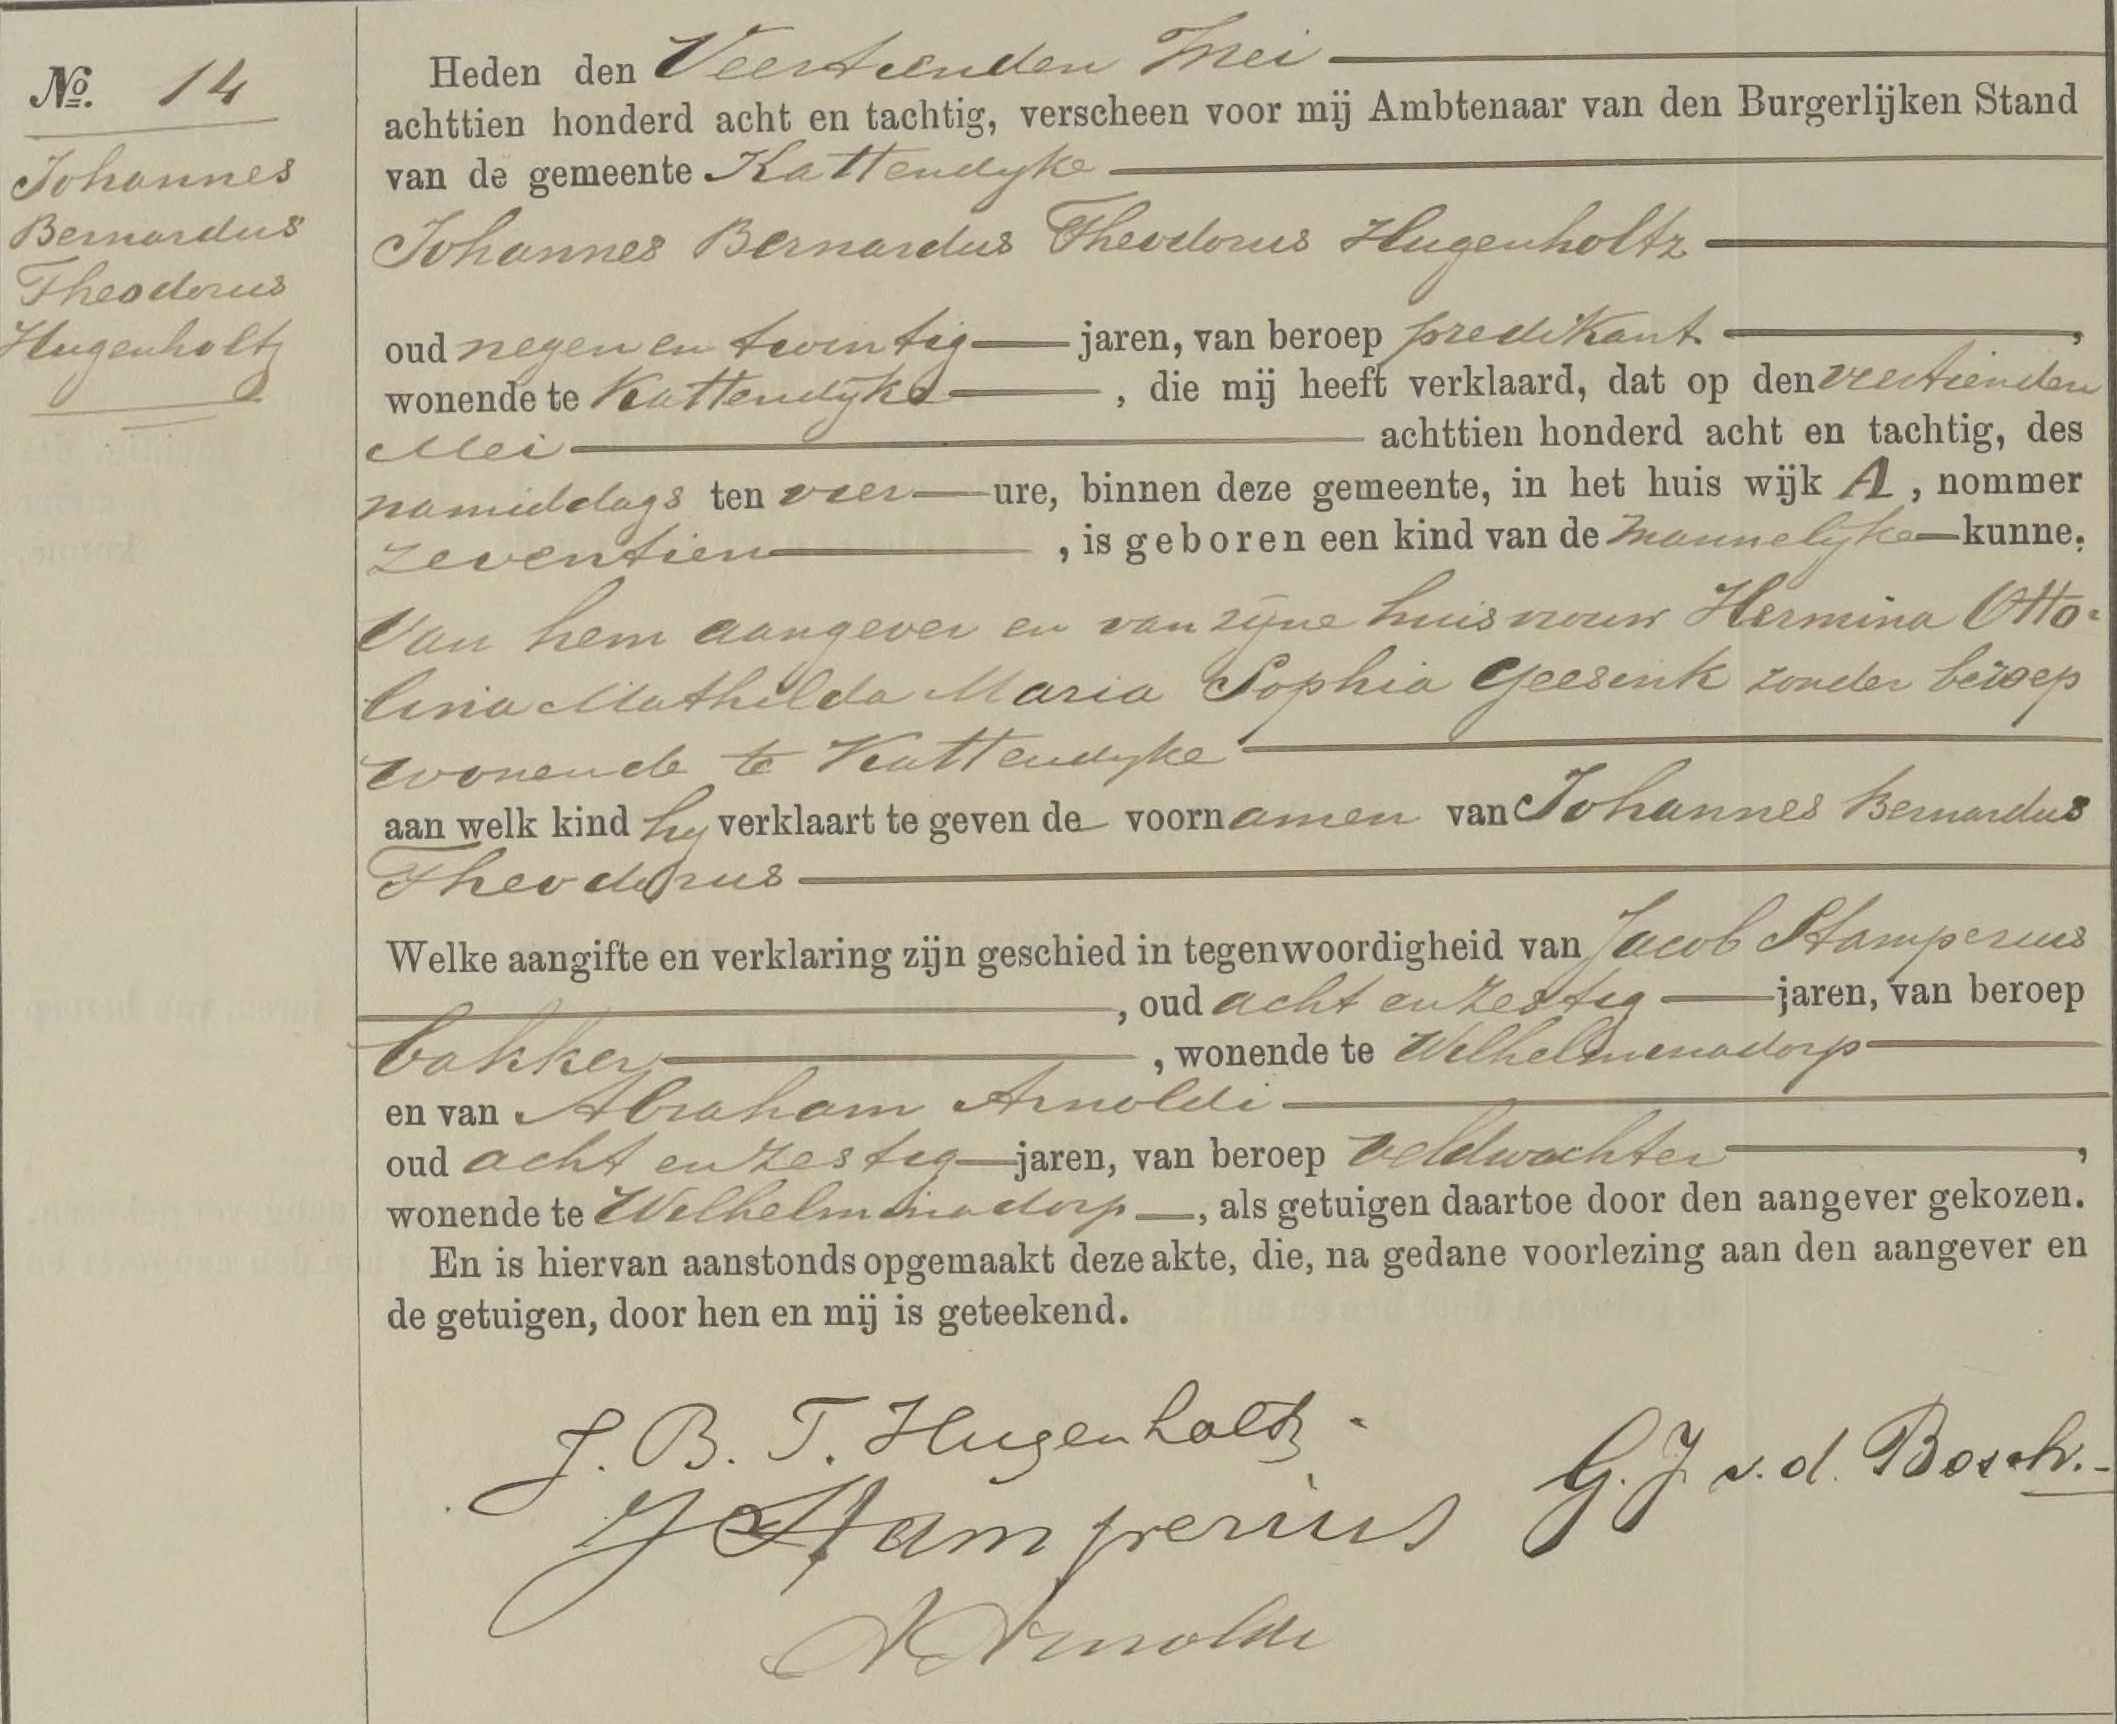 No. 14
Johannes
Bernardus
Theodorus
Hugenholtz
Heden den Veertienden Mei
achttien honderd acht en tachtig, verscheen voor mij Ambtenaar van den Burgerlijken Stand
van de gemeente Kattendyke
Johannes Bernardus Theodorus Hugenholtz
oud negen en twintig jaren, van beroep predikant ,
wonende te Kattendyke , die mij heeft verklaard, dat op den veertienden
Mei achttien honderd acht en tachtig, des
namiddags ten vier ure, binnen deze gemeente, in het huis wijk A , nommer
zeventien , is geboren een kind van de mannelyke kunne,
Van hem aangever en van zyne huisvrouw Hermina Otto-
lina Mathilda Maria Sophia Geesink zonder beroep
wonende te Kattendyke
aan welk kind hy verklaart te geven de voornamen van Johannes Bernardus
Theodorus
Welke aangifte en verklaring zijn geschied in tegenwoordigheid van Jacob Stamperius
, oud acht en zestig jaren, van beroep
bakker , wonende te Wilhelminadorp
en van Abraham Arnoldi
oud acht en zestig jaren, van beroep veldwachter ,
wonende te Wilhelminadorp , als getuigen daartoe door den aangever gekozen.
En is hiervan aanstonds opgemaakt deze akte, die, na gedane voorlezing aan den aangever en
de getuigen, door hen en mij is geteekend.
J. B. T. Hugenholtz.
G. J. v. d. Bosch.
J Stamperius
A Arnoldi